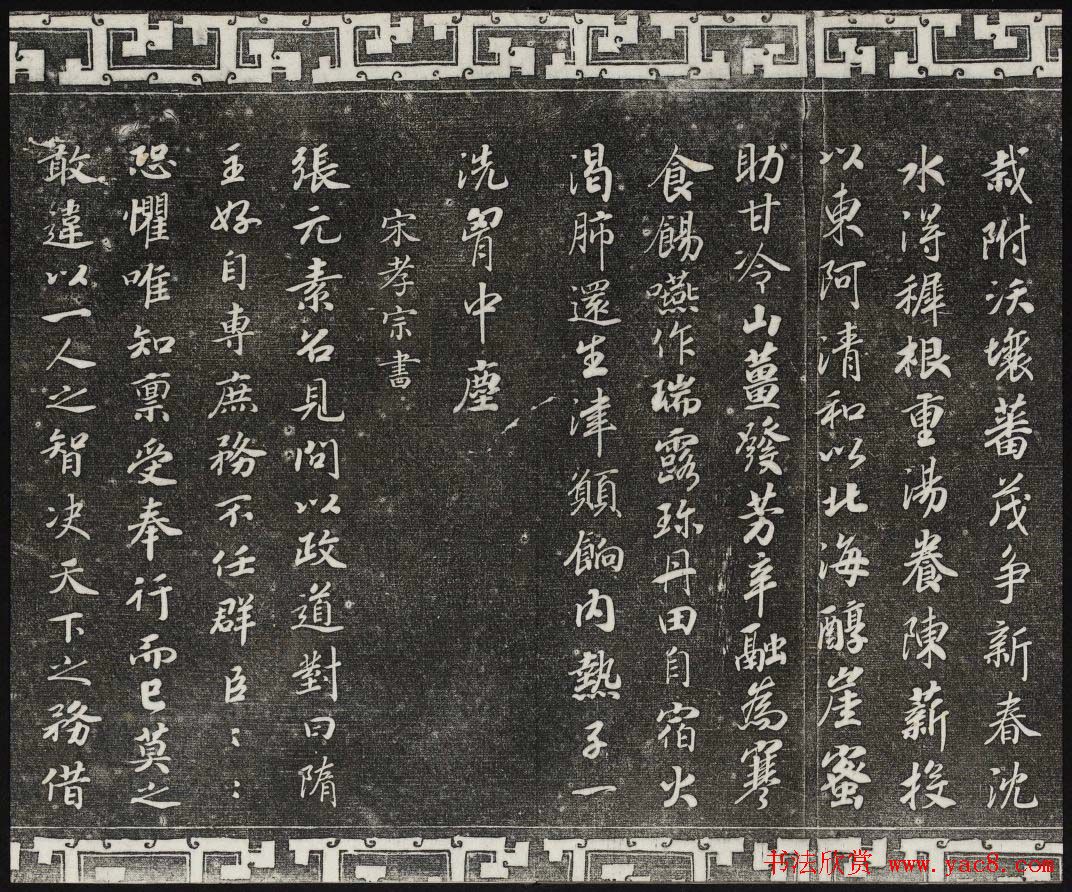 栽附沃壤蕃茂争新春沈
水得穉根重湯養陳薪投
以東阿清和以北海醇崖蜜
助甘冷山薑發芳辛融為寒
食餳嚥作瑞露珎丹田自宿火
渴肺還生津願餉内熱子一
洗胷中塵
宋孝宗書
張元素召見問以政道對曰隋
主好自専庶務不任群臣〻〻
恐懼唯知禀受奉行而已莫之
敢違以一人之智决天下之務借
书法欣赏 www.yac8.com